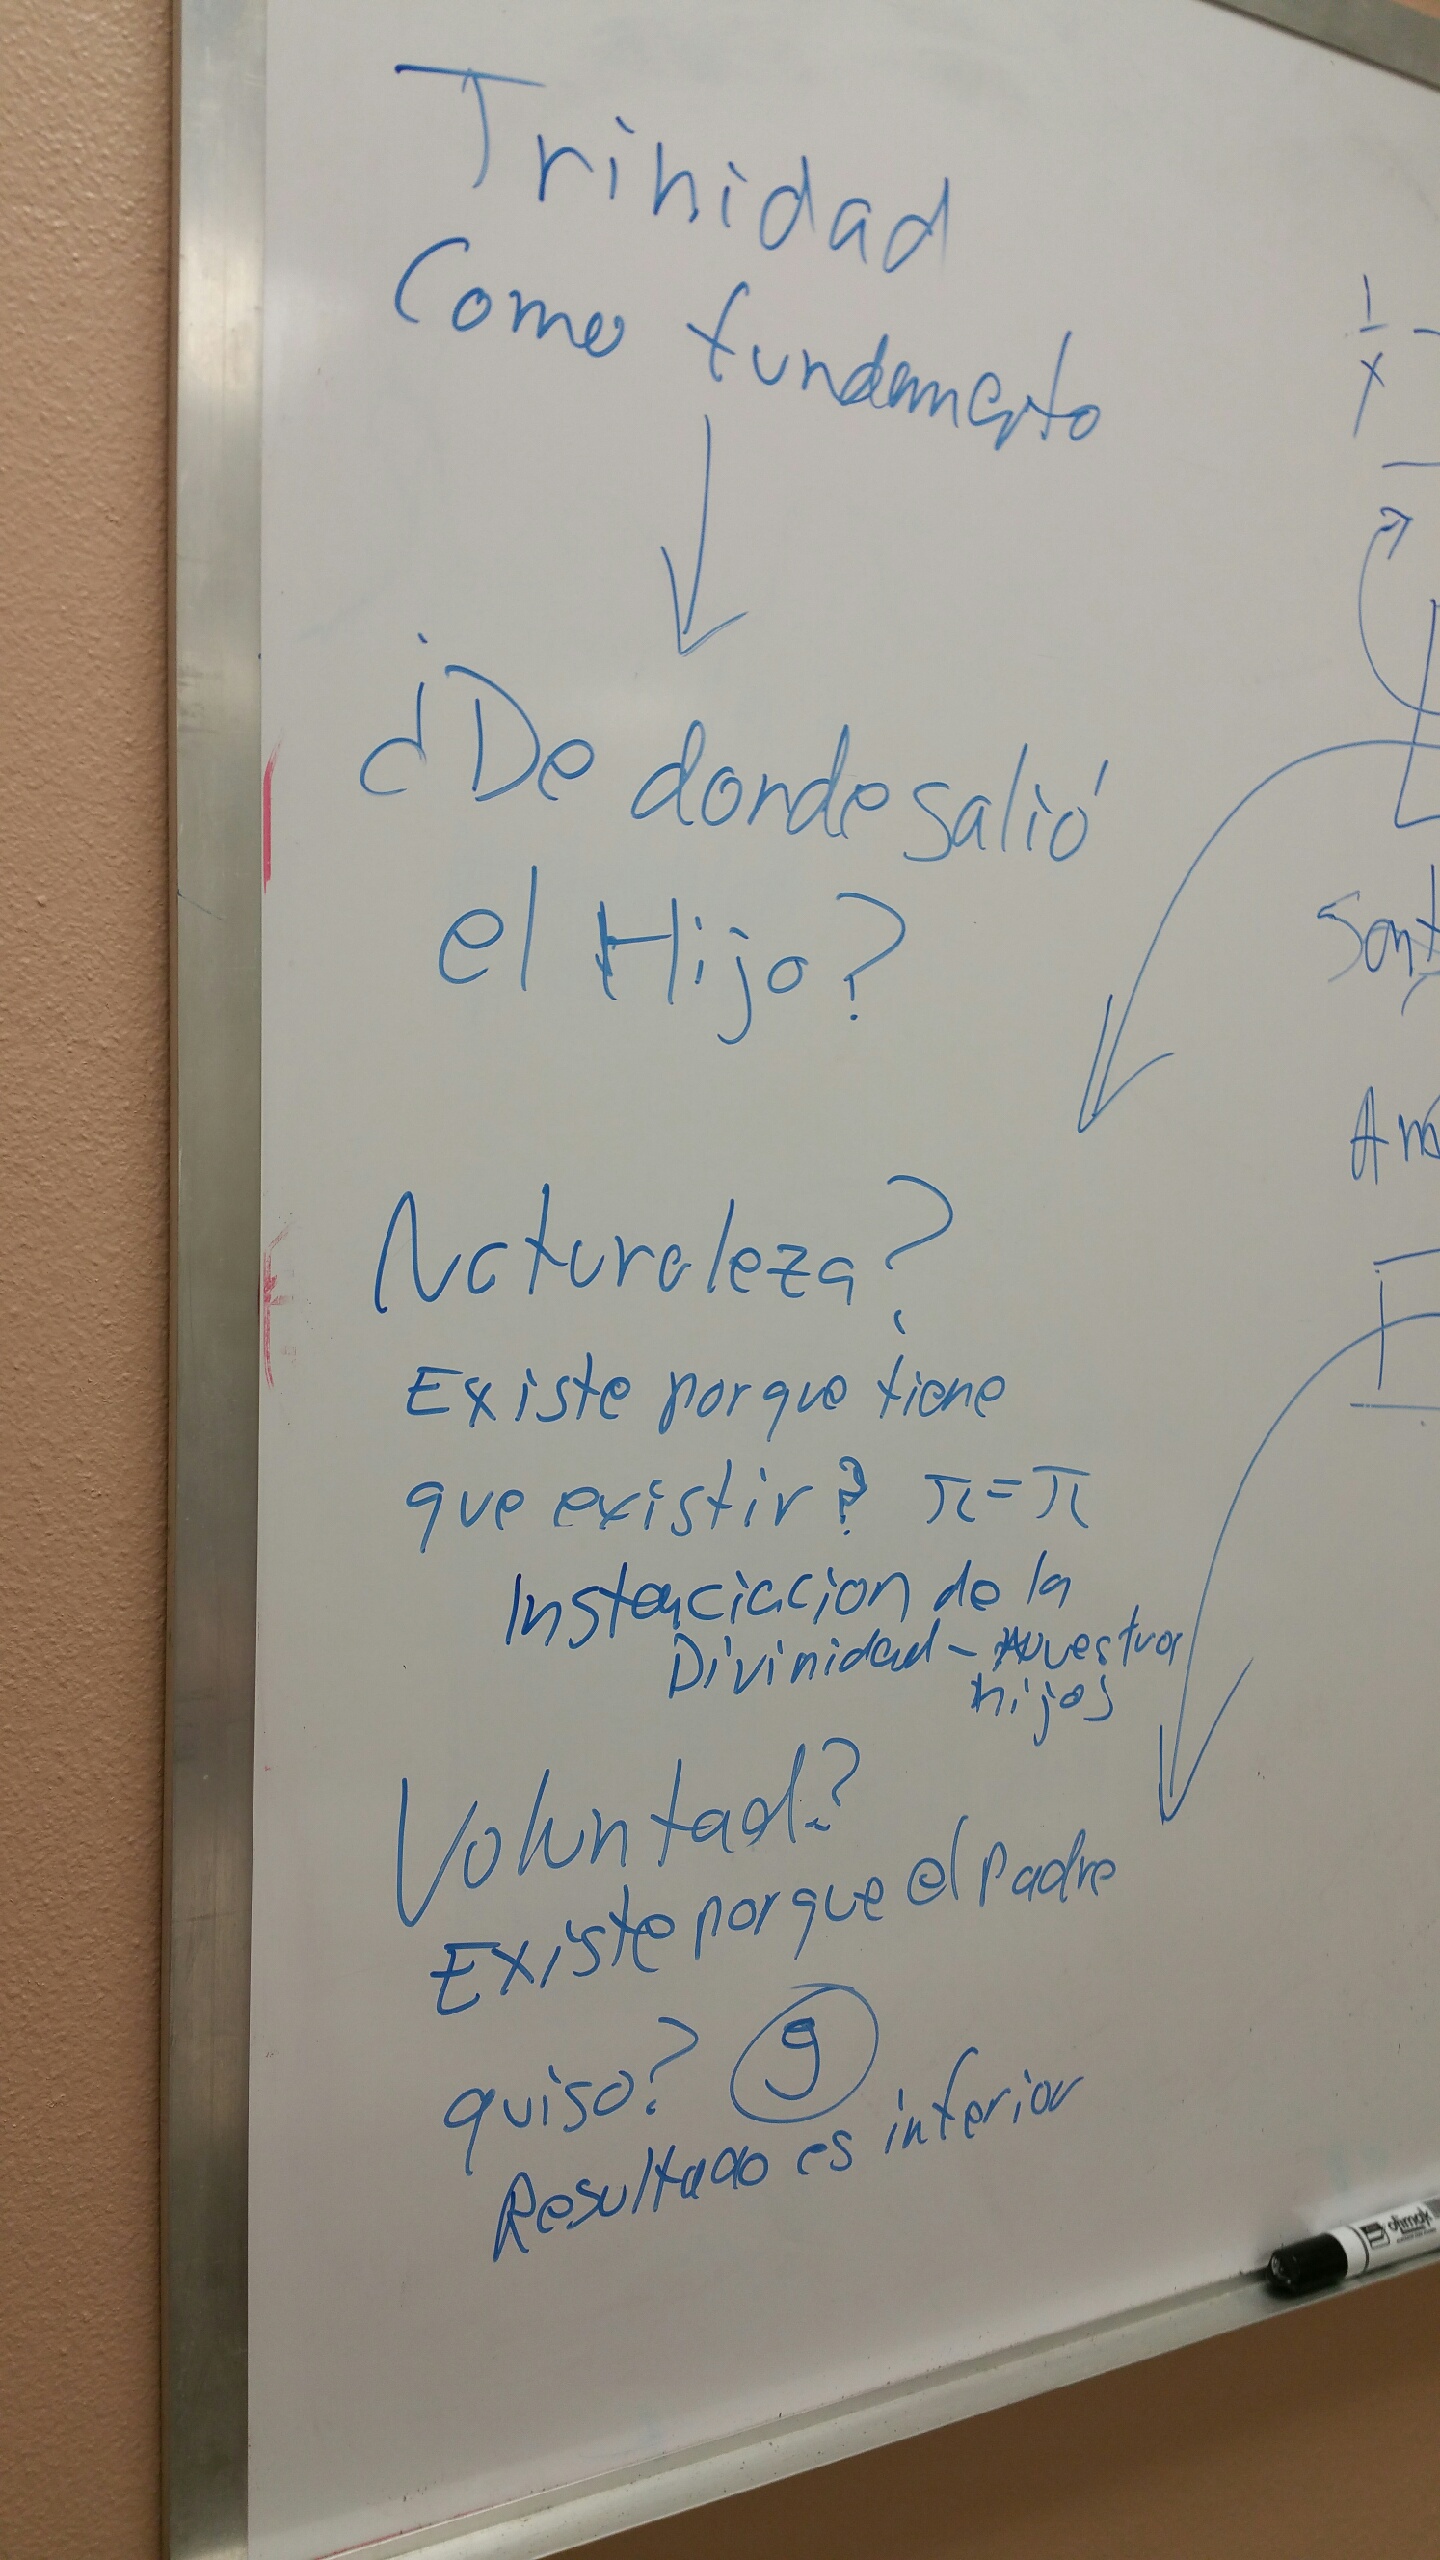 Trinidad
Como fundamento
¿De donde salió
el Hijo?
Naturaleza?
Existe porque tiene
que existir? π=π
Instanciacion de la
Divinidad - Nuestros
hijos
Voluntad?
Existe porque el Padre
quiso? 9
Resultado es inferior
1
x